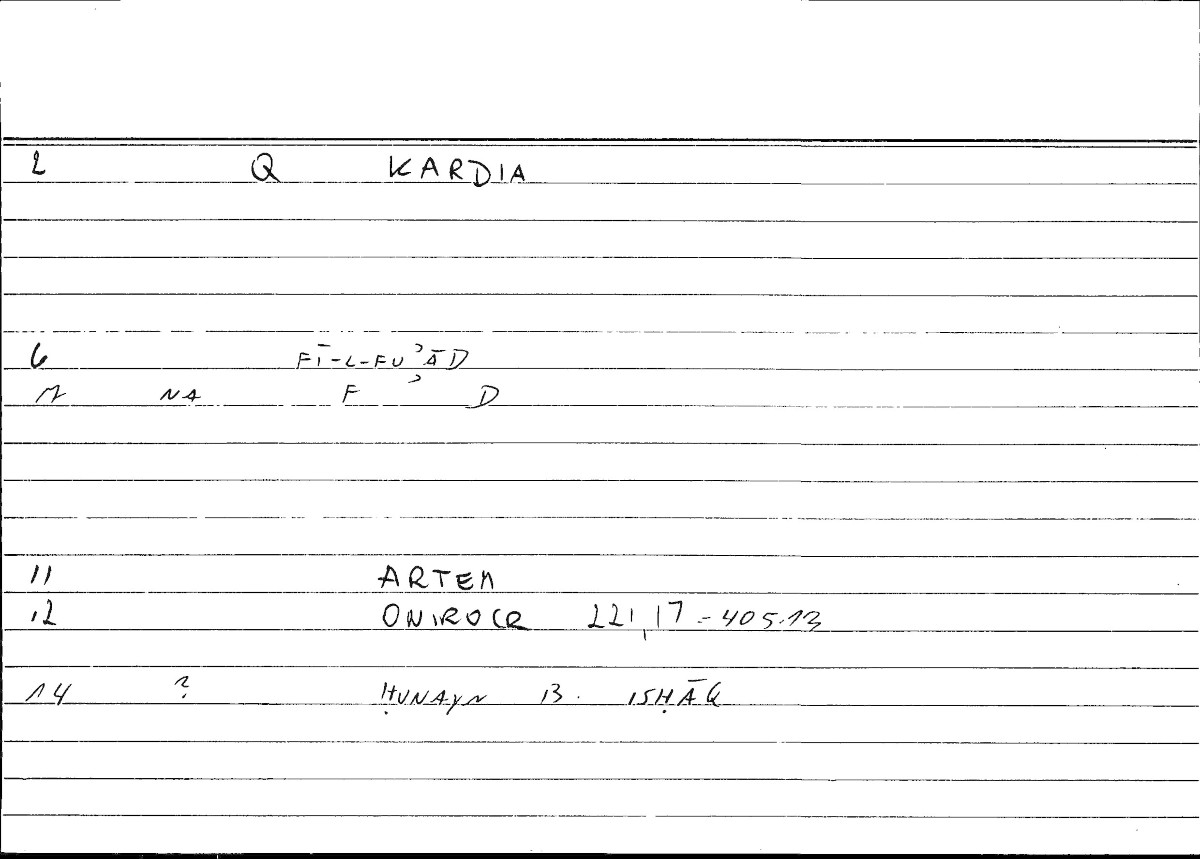 2 Q KARDIA
6 FĪ-L-FUʾĀD
7 NA F ʾ D
11 ARTEM
12 ONIROCR 221,17 = 405.13
14 ? ḤUNAYN B. ISḤĀQ